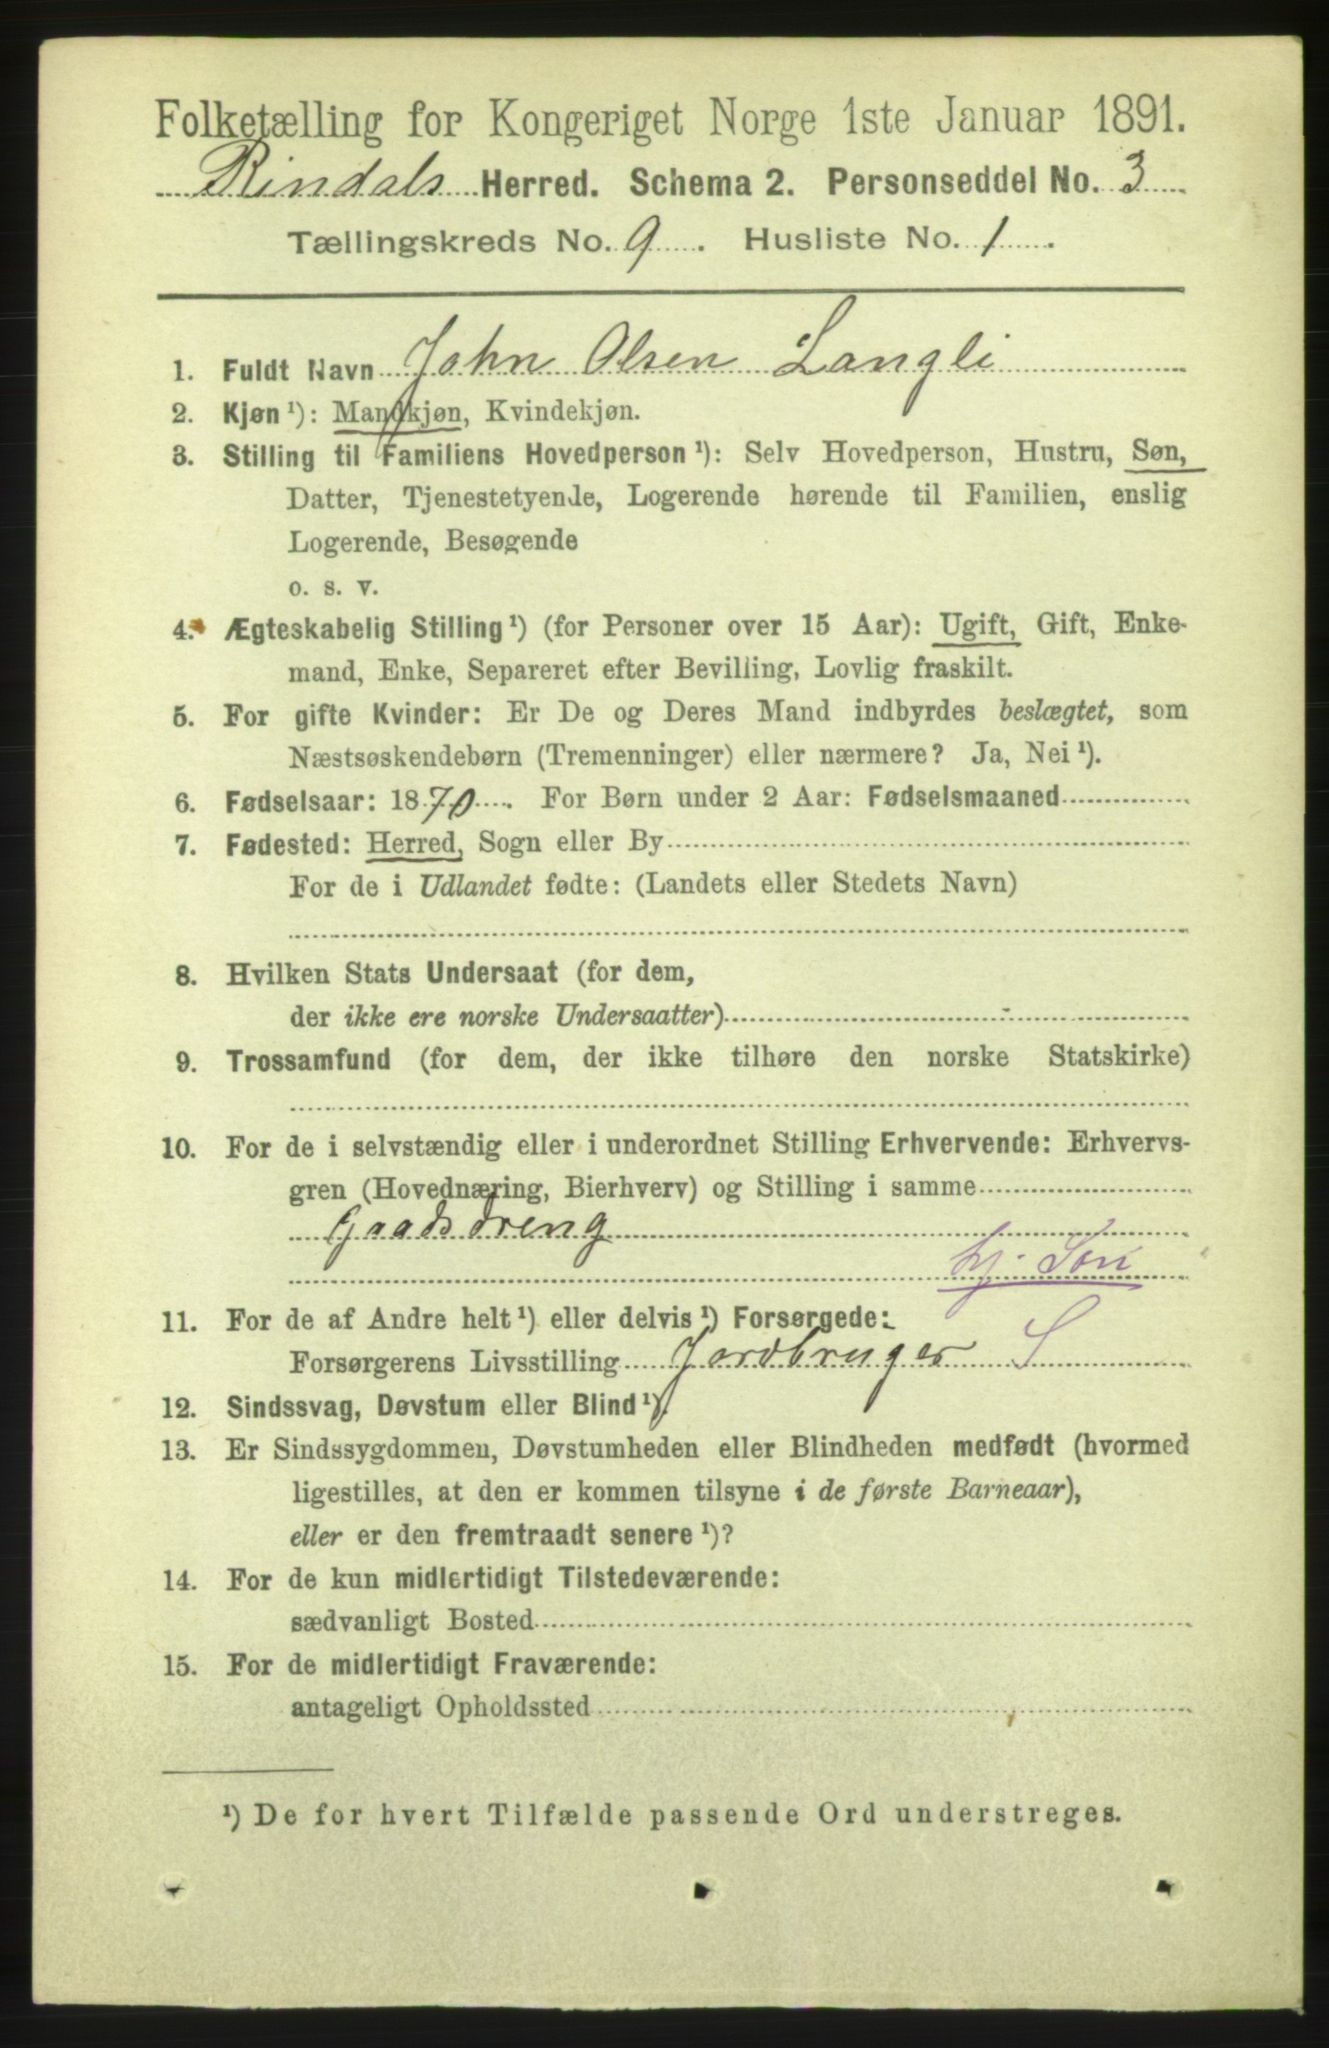 Folketælling for Kongeriget Norge 1ste Januar 1891.
Rindals Herred. Schema 2. Personseddel No. 3
Tællingskreds No. 9. Husliste No. 1.
1. Fuldt Navn John Olsen Langli
2. Kjøn ¹): Mandkjøn, Kvindekjøn.
3. Stilling til Familiens Hovedperson ¹): Selv Hovedperson, Hustru, Søn,
Datter, Tjenestetyende, Logerende hørende til Familien, enslig
Logerende, Besøgende
o. s. v.
4. Ægteskabelig Stilling ¹) (for Personer over 15 Aar): Ugift, Gift, Enke-
mand, Enke, Separeret efter Bevilling, Lovlig fraskilt.
5. For gifte Kvinder: Er De og Deres Mand indbyrdes beslægtet, som
Næstsøskendebørn (Tremenninger) eller nærmere? Ja, Nei ¹).
6. Fødselsaar: 1870. For Børn under 2 Aar: Fødselsmaaned
7. Fødested: Herred, Sogn eller By
For de i Udlandet fødte: (Landets eller Stedets Navn)
8. Hvilken Stats Undersaat (for dem,
der ikke ere norske Undersaatter)
9. Trossamfund (for dem, der ikke tilhøre den norske Statskirke)
10. For de i selvstændig eller i underordnet Stilling Erhvervende: Erhvervs-
gren (Hovednæring, Bierhverv) og Stilling i samme
Gaadsdreng
hj. Søn
11. For de af Andre helt ¹) eller delvis ¹) Forsørgede:
Forsørgerens Livsstilling Jordbruger S
12. Sindssvag, Døvstum eller Blind ¹).
13. Er Sindssygdommen, Døvstumheden eller Blindheden medfødt (hvormed
ligestilles, at den er kommen tilsyne i de første Barneaar),
eller er den fremtraadt senere ¹)?
14. For de kun midlertidigt Tilstedeværende:
sædvanligt Bosted
15. For de midlertidigt Fraværende:
antageligt Opholdssted
¹) De for hvert Tilfælde passende Ord understreges.